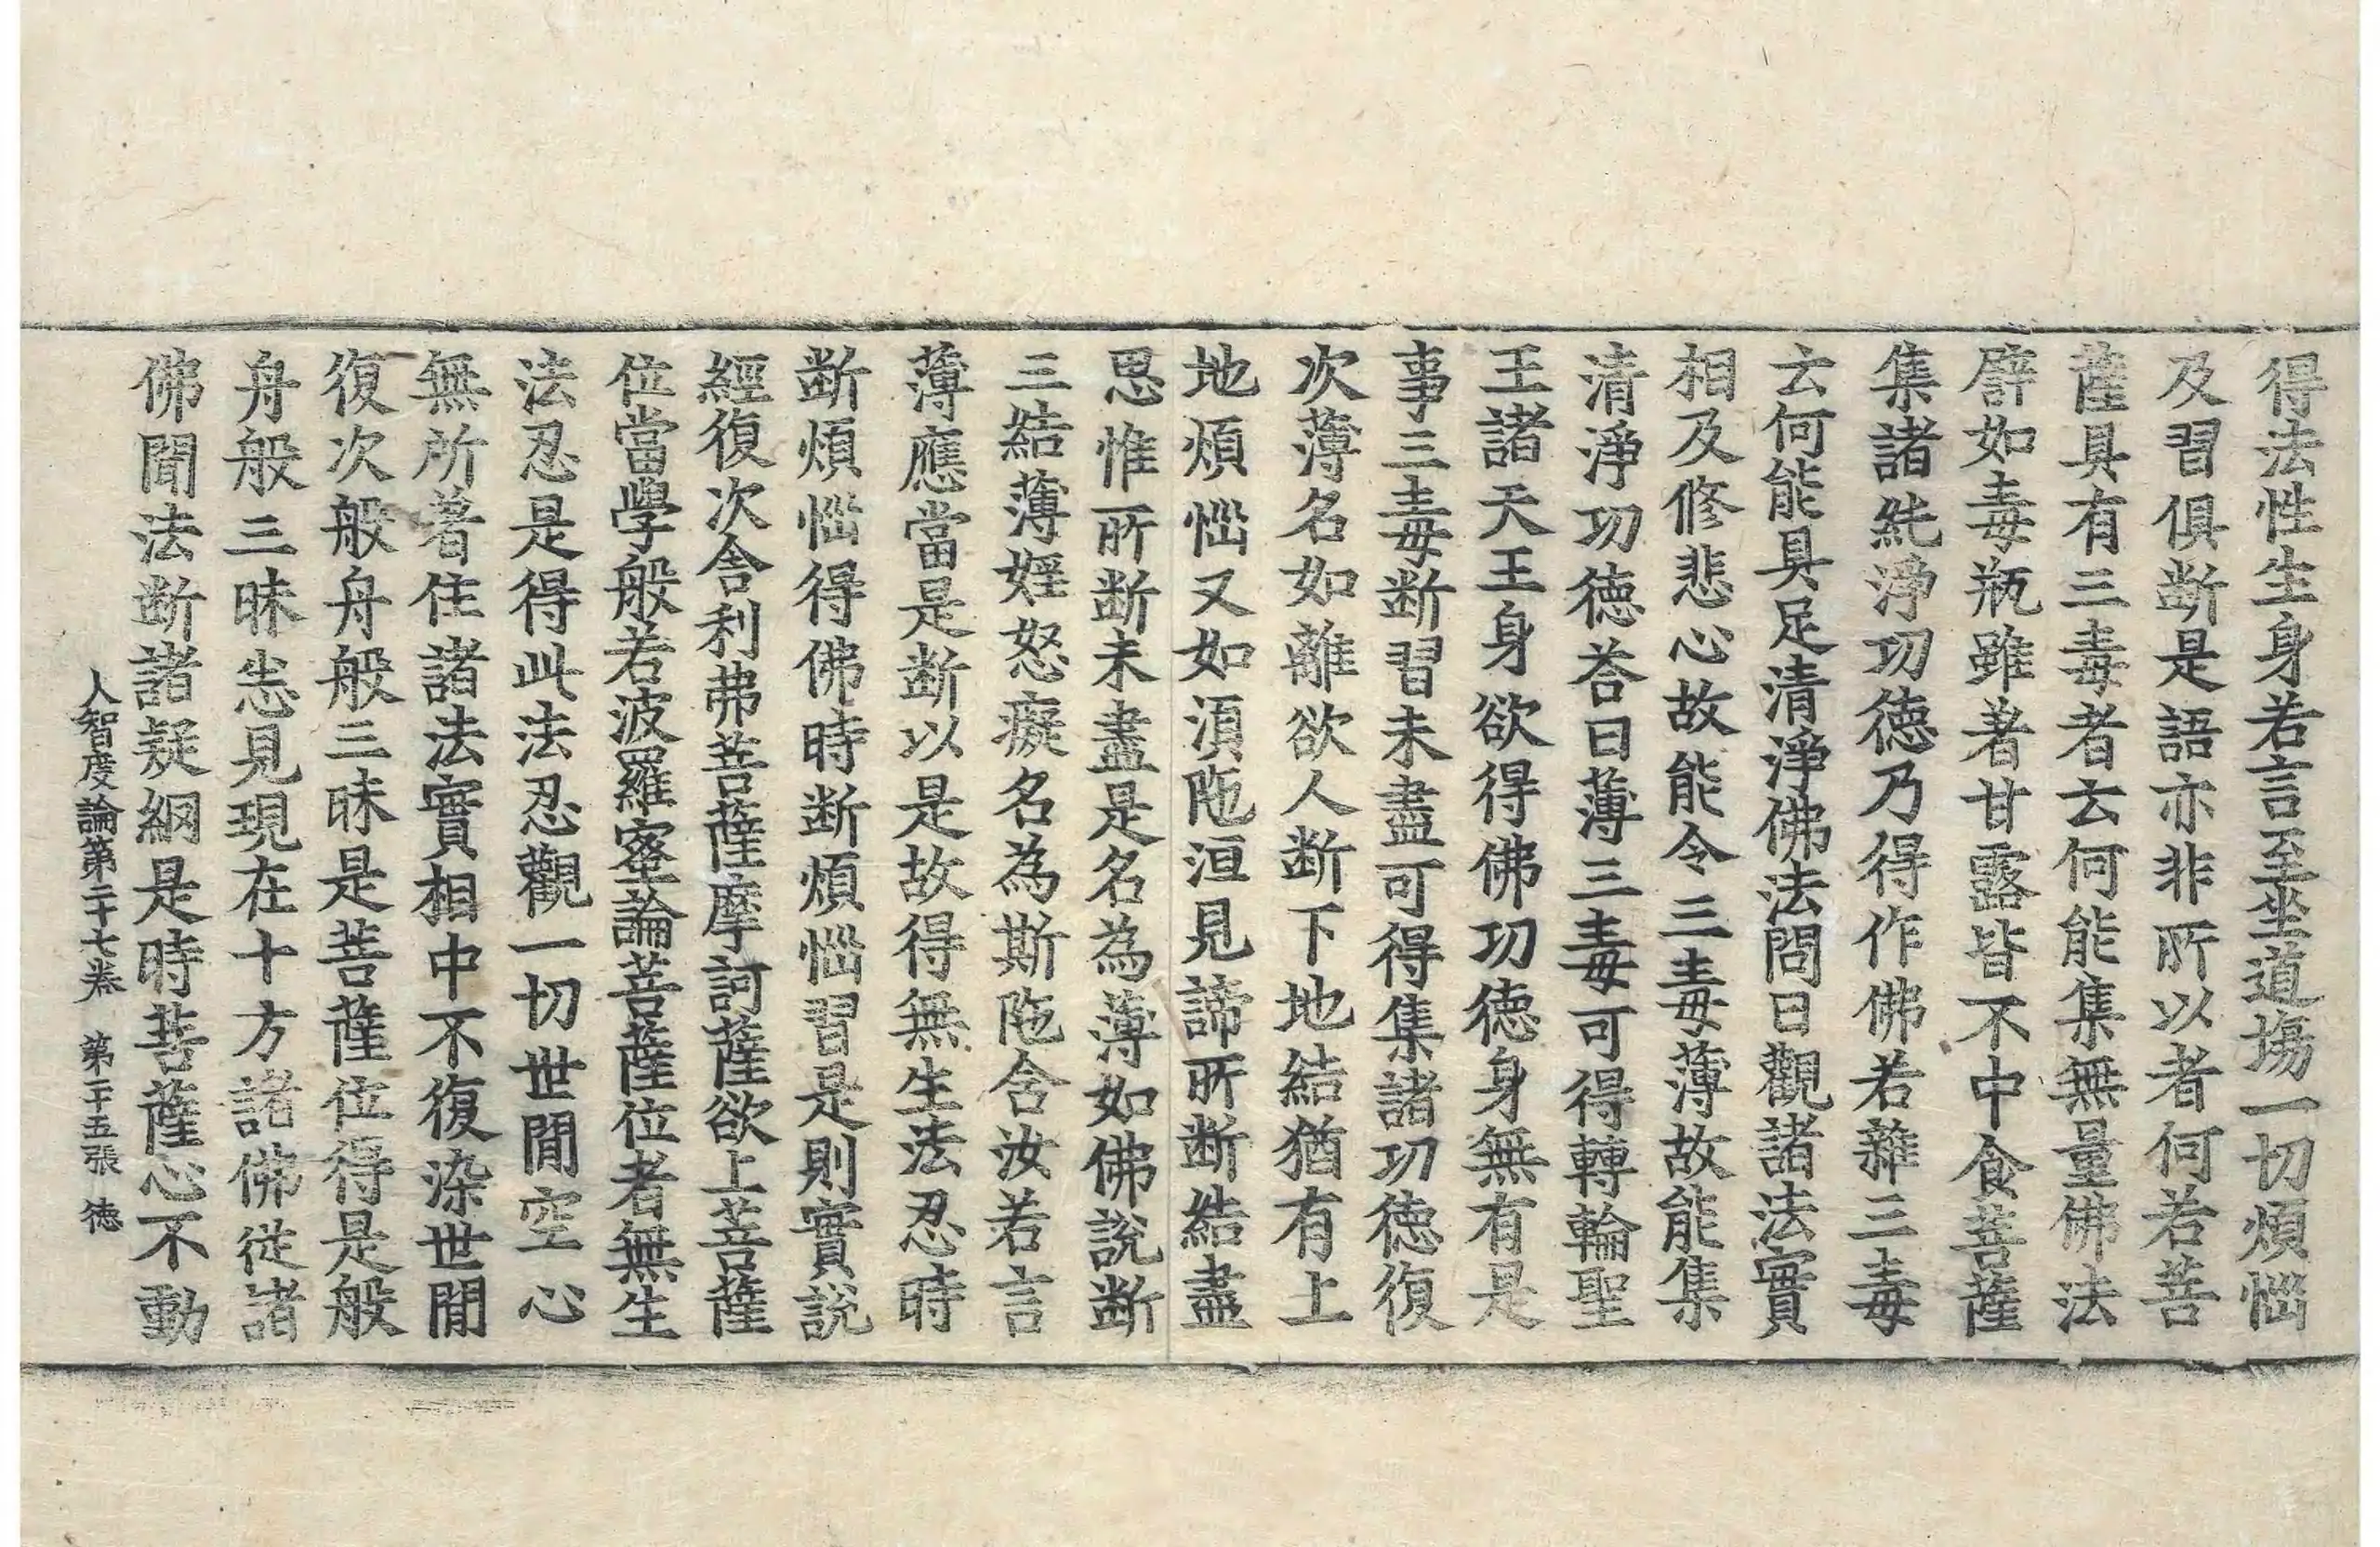 得法性生身若言至坐道場一切煩惱
及習俱断是語亦非所以者何若菩
薩具有三毒者云何能集無量佛法
譬如毒瓶雖著甘露皆不中食菩薩
集諸純淨功德乃得作佛若雜三毒
云何能具足清淨佛法問曰觀諸法實
相及修悲心故能令三毒薄故能集
清淨功德荅曰薄三毒可得轉輪聖
王諸天王身欲得佛功德身無有是
事三毒断習未盡可得集諸功德復
次薄名如離欲人断下地結猶有上
地煩惱又如須陁洹見諦所断結盡
思惟所断未盡是名為薄如佛說断
三結薄婬怒癡名為斯陁含汝若言
薄應當是断以是故得無生法忍時
断煩惱得佛時断煩惱習是則實說
經復次舍利弗菩薩摩訶薩欲上菩薩
位當學般若波羅蜜論菩薩位者無生
法忍是得此法忍觀一切世閒空心
無所著住諸法實相中不復染世閒
復次般舟般三昧是菩薩位得是般
舟般三昧悉見現在十方諸佛從諸
佛聞法断諸疑網是時菩薩心不動
人智度論第二十七卷 第二十五張 徳